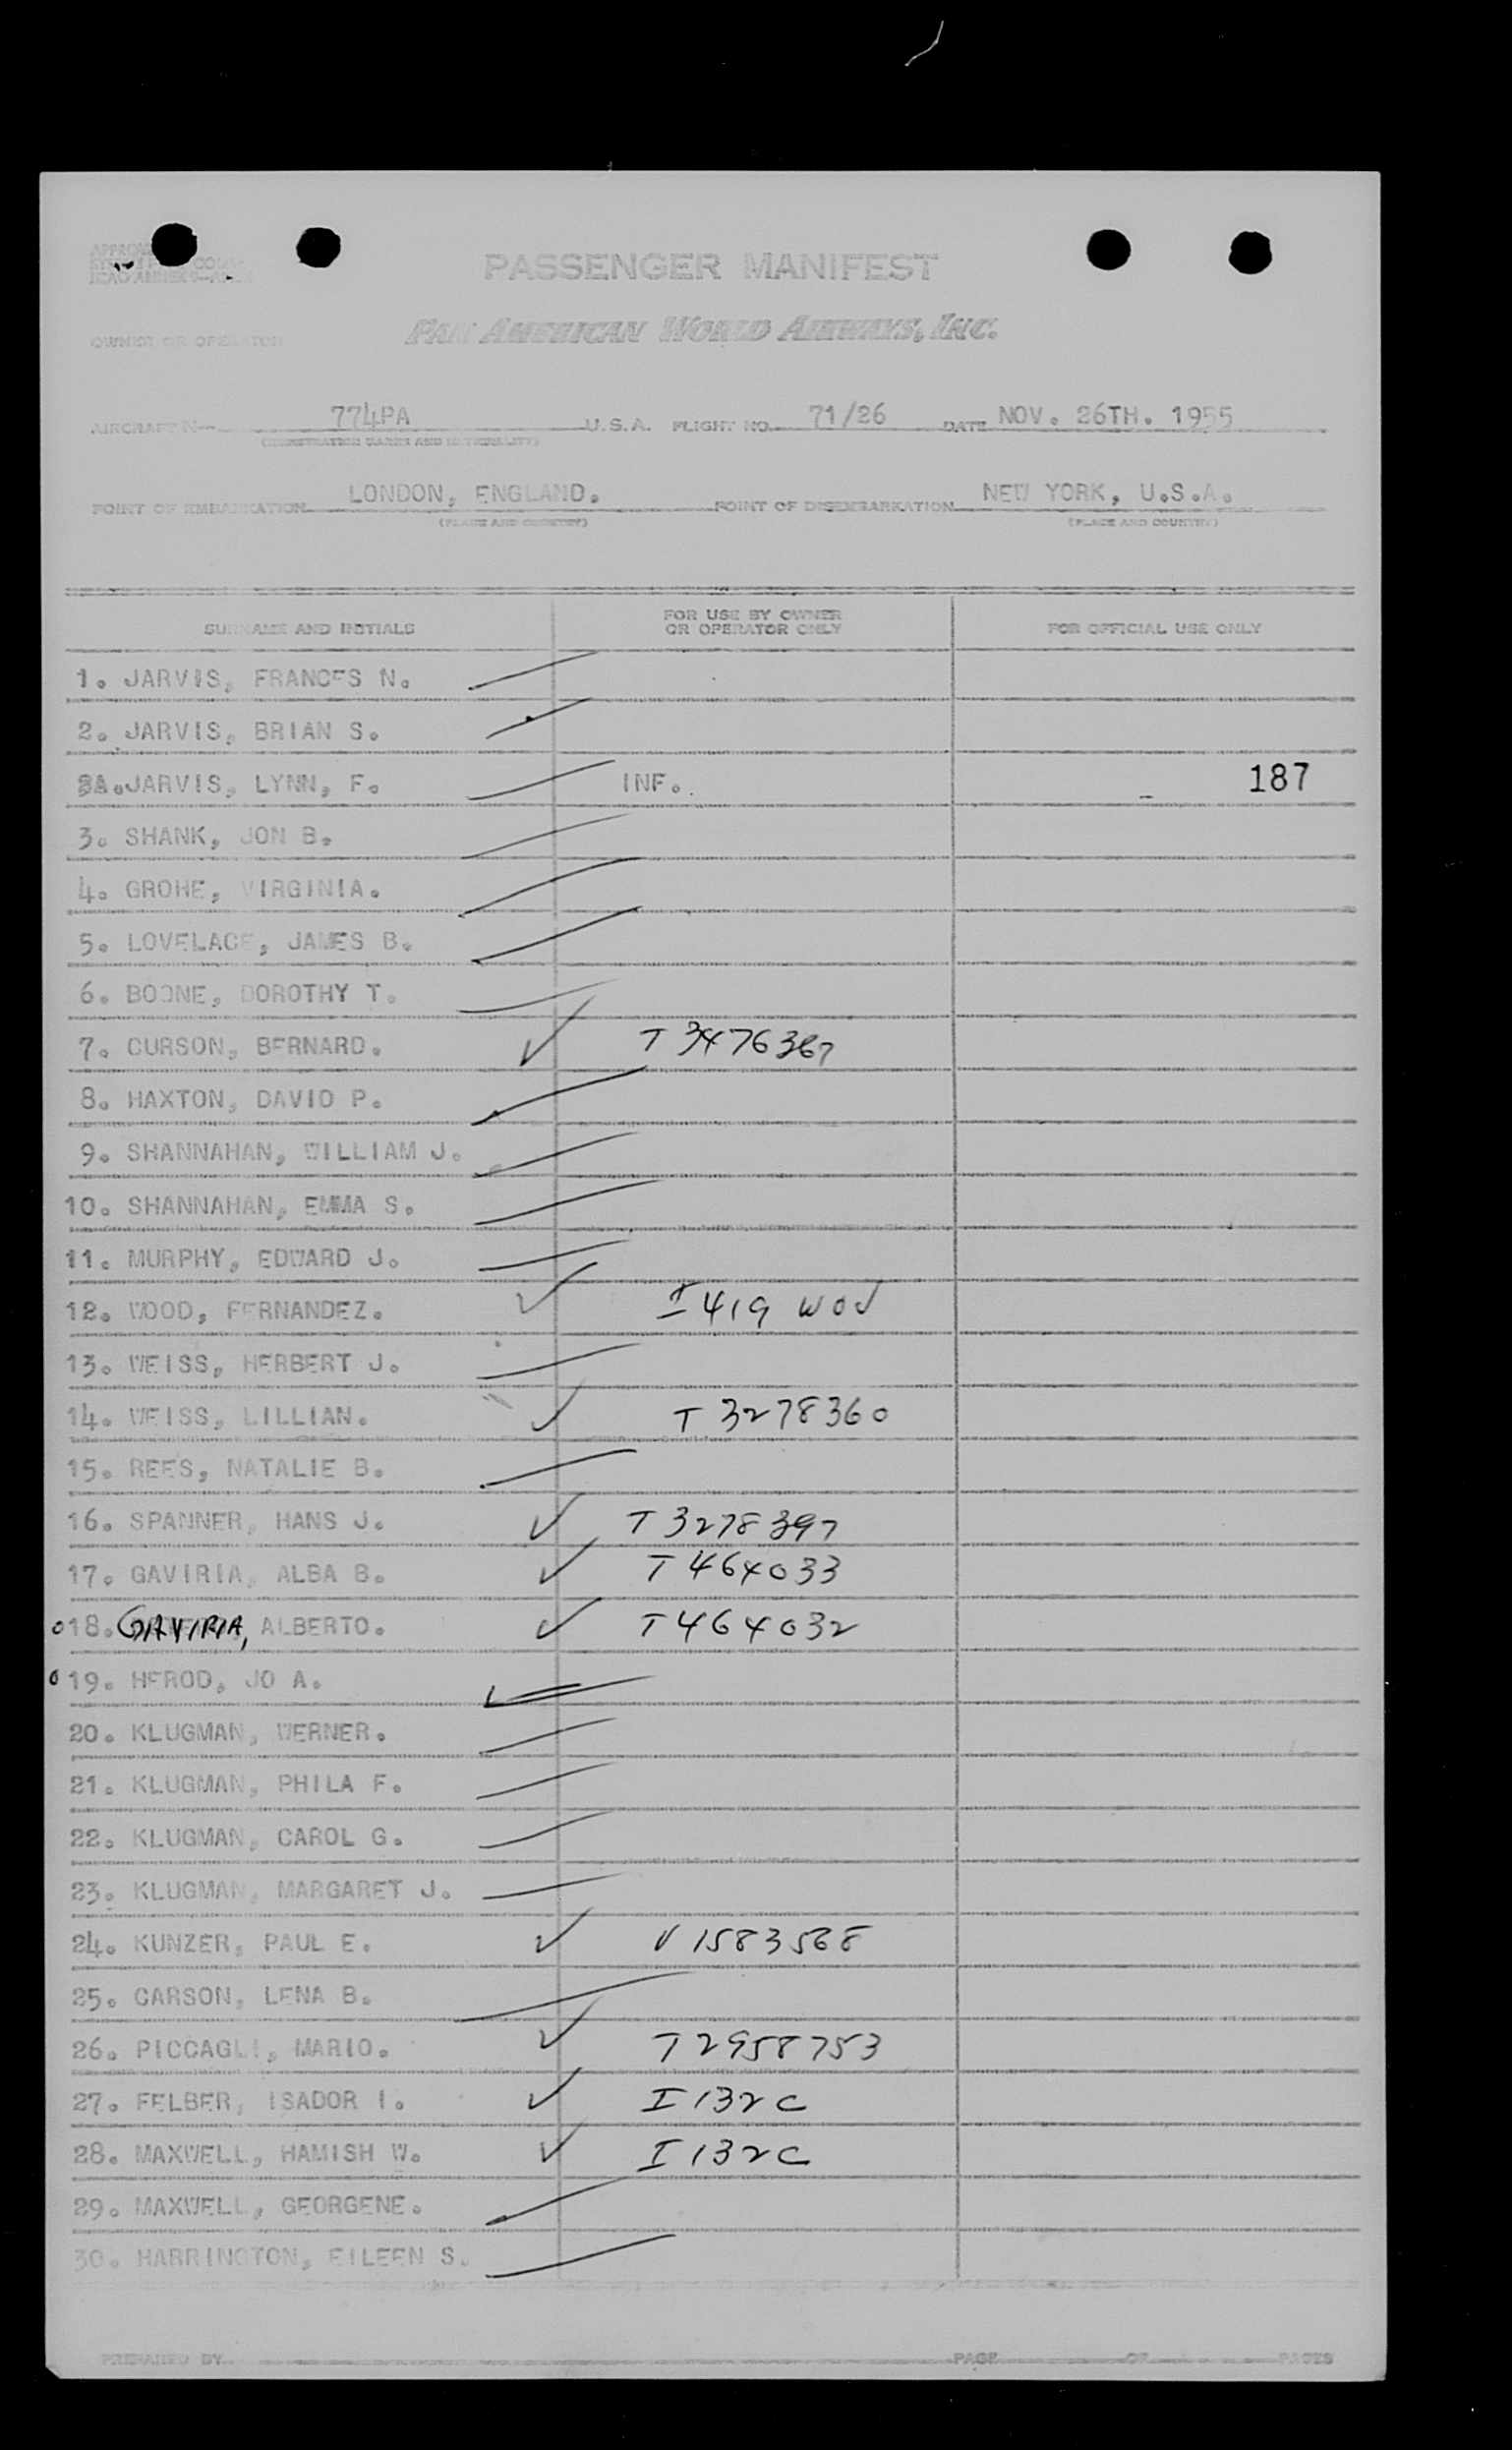 PASSENGER MANIFEST
OWNER OR OPERATOR PAN AMERICAN WORLD AIRWAYS, INC.
AIRCRAFT N- 774PA U.S.A. FLIGHT NO. 71/26 DATE NOV. 26TH. 1955
(REGISTRATION MARKS AND NATIONALITY)
POINT OF EMBARKATION LONDON, ENGLAND. POINT OF DISEMBARKATION NEW YORK, U.S.A.
(PLACE AND COUNTRY) (PLACE AND COUNTRY)
SURNAME AND INITIALS FOR USE BY OWNER OR OPERATOR ONLY FOR OFFICIAL USE ONLY
1. JARVIS, FRANCES N.
2. JARVIS, BRIAN S.
JARVIS, LYNN, F. INF. 187
3. SHANK, JON B.
4. GROHE, VIRGINIA.
5. LOVELACE, JAMES B.
6. BOONE, DOROTHY T.
7. CURSON, BERNARD. T 3476367
8. HAXTON, DAVID P.
9. SHANNAHAN, WILLIAM J.
10. SHANNAHAN, EMMA S.
11. MURPHY, EDWARD J.
12. WOOD, FERNANDEZ. I 419 WOJ
13. WEISS, HERBERT J.
14. WEISS, LILLIAN. T 3278360
15. REES, NATALIE B.
16. SPANNER, HANS J. T 3278397
17. GAVIRIA, ALBA B. T 464033
18. GAVIRIA, ALBERTO. T 464032
19. HEROD, JO A.
20. KLUGMAN, WERNER.
21. KLUGMAN, PHILA F.
22. KLUGMAN, CAROL G.
23. KLUGMAN, MARGARET J.
24. KUNZER, PAUL E. V 1583568
25. CARSON, LENA B.
26. PICCAGLI, MARIO. T 2958753
27. FELBER, ISADOR I. I 132C
28. MAXWELL, HAMISH W. I 132C
29. MAXWELL, GEORGENE.
30. HARRINGTON, EILEEN S.
PREPARED BY PAGE OF PAGES